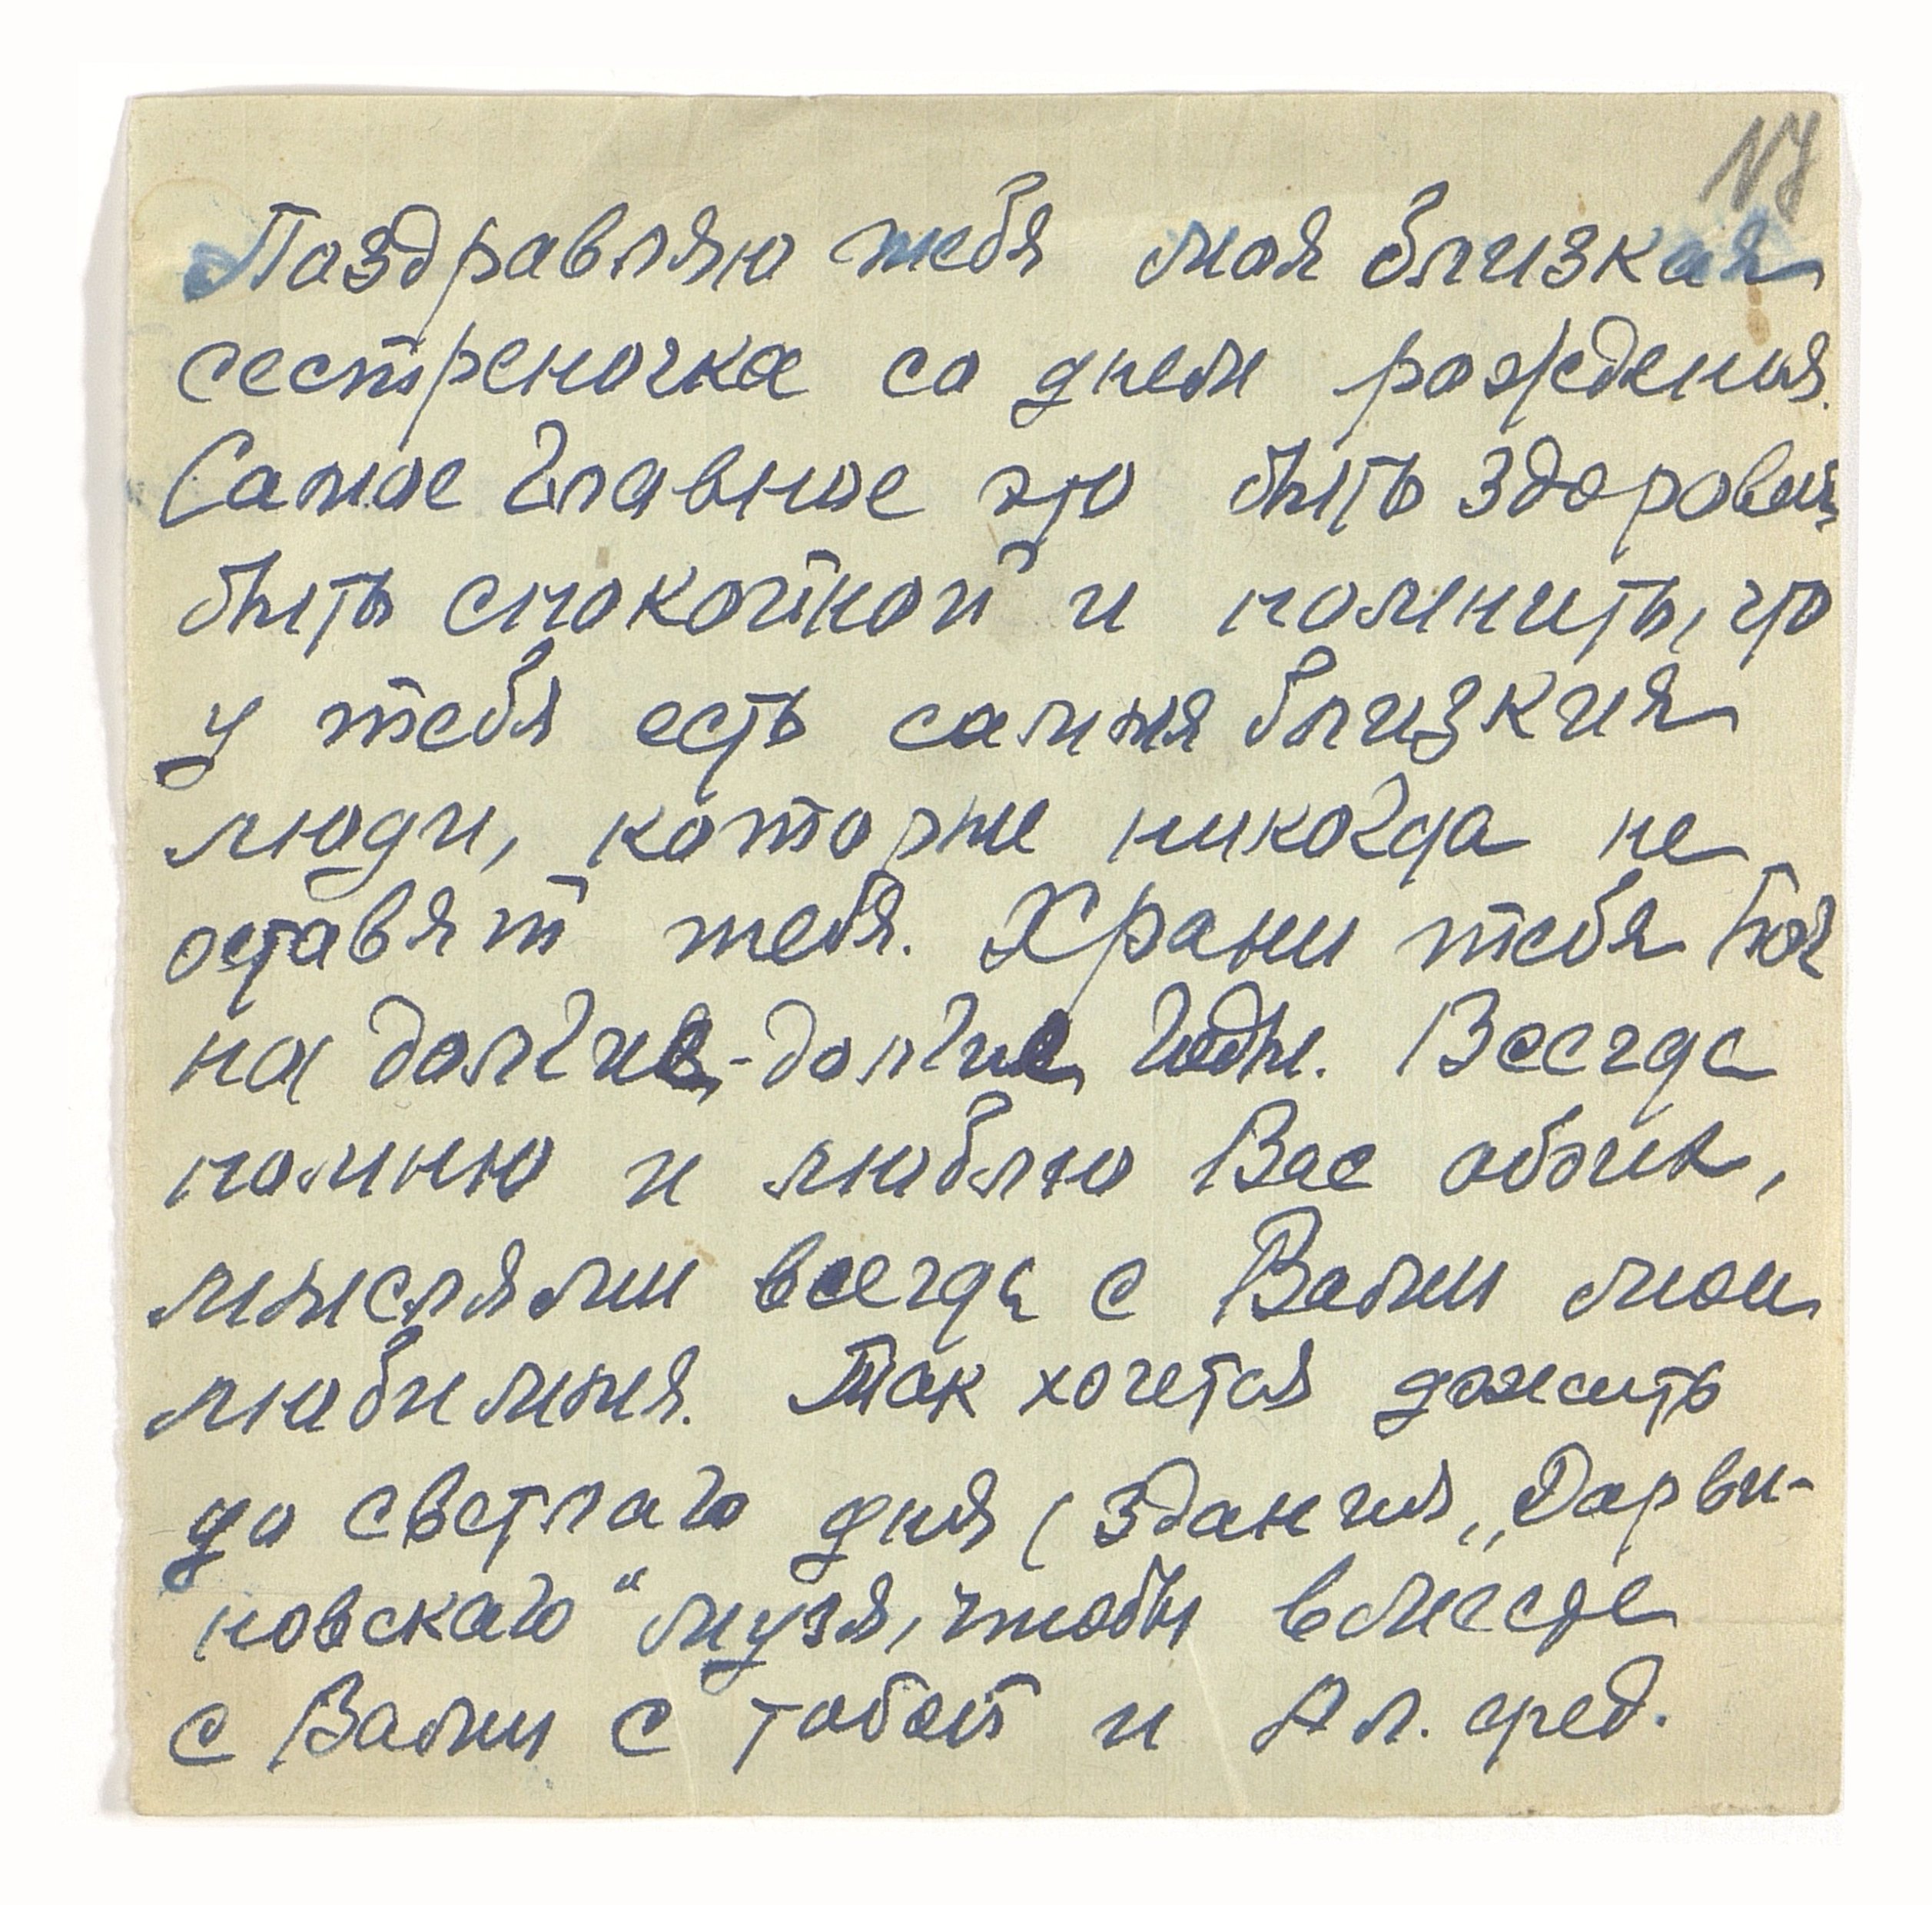 N7
Поздравляю тебя моя близкая
сестреночка со днем рождения.
Самое главное это быть здоровой,
быть спокойной и помнить, что
у тебя есть самыя близкия
люди, которые никогда не
оставят тебя. Храни тебя Бог
на долгие-долгие годы. Всегда
помню и люблю Вас обоих,
мыслями всегда с Вами мои
любимыя. Так хочется дожить
до светлаго дня (здания „Дарви-
новскаго" музея, чтобы вместе
с Вами с тобой и Ал. Фед.